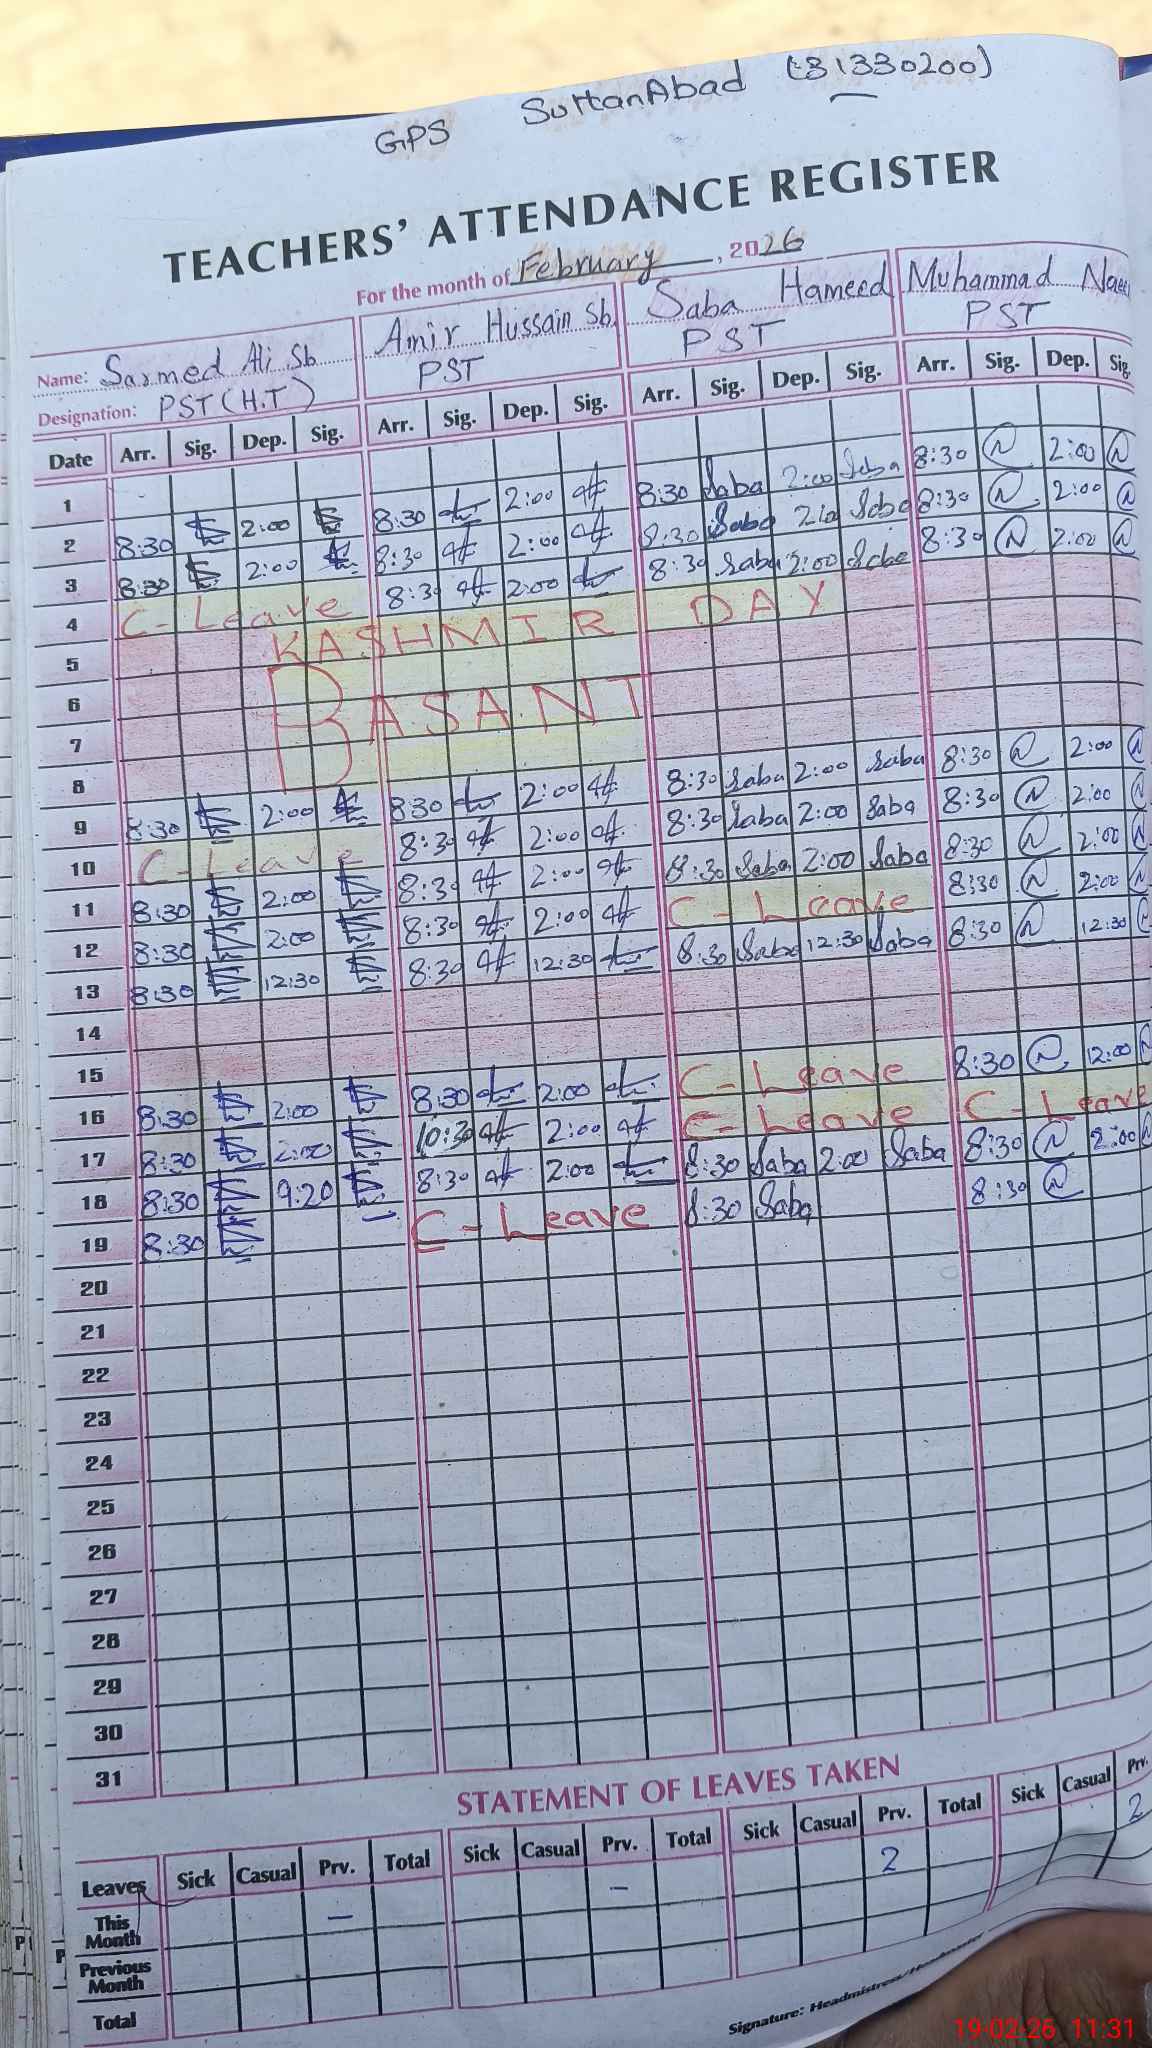 GPS SultanAbad (31330200)
TEACHERS' ATTENDANCE REGISTER
For the month of February, 2026
Name: Sarmed Ali Sb Amir Hussain Sb. Saba Hameed Muhammad
Designation: PST (H.T) PST PST PST
Date Arr. Sig. Dep. Sig. Arr. Sig. Dep. Sig. Arr. Sig. Dep. Sig. Arr. Sig. Dep. Sig.
1
2 8:30 2:00 8:30 2:00 8:30 Saba 2:00 Saba 8:30 2:00
3 8:30 2:00 8:30 2:00 8:30 Saba 2:00 Saba 8:30 2:00
4 C-Leave 8:30 2:00 8:30 Saba 2:00 Saba 8:30 2:00
5 KASHMIR DAY
6 BASANT
7
8
9 8:30 2:00 830 2:00 8:30 Saba 2:00 Saba 8:30 2:00
10 C-Leave 8:30 2:00 8:30 Saba 2:00 Saba 8:30 2:00
11 8:30 2:00 8:30 2:00 8:30 Saba 2:00 Saba 8:30 2:00
12 8:30 2:00 8:30 2:00 C-Leave 8:30 2:00
13 8:30 12:30 8:30 12:30 8:30 Saba 12:30 Saba 8:30 12:30
14
15
16 8:30 2:00 8:30 2:00 C-Leave 8:30 12:00
17 8:30 2:00 10:30 2:00 C-Leave C-Leave
18 8:30 9:20 8:30 2:00 8:30 Saba 2:00 Saba 8:30 2:00
19 8:30 C-Leave 8:30 Saba 8:30
20
21
22
23
24
25
26
27
28
29
30
31
STATEMENT OF LEAVES TAKEN
Leaves Sick Casual Prv. Total Sick Casual Prv. Total Sick Casual Prv. Total Sick Casual Prv.
This Month – – 2 2
Previous Month
Total
Signature: Headmistress/
19-02-26 11:31